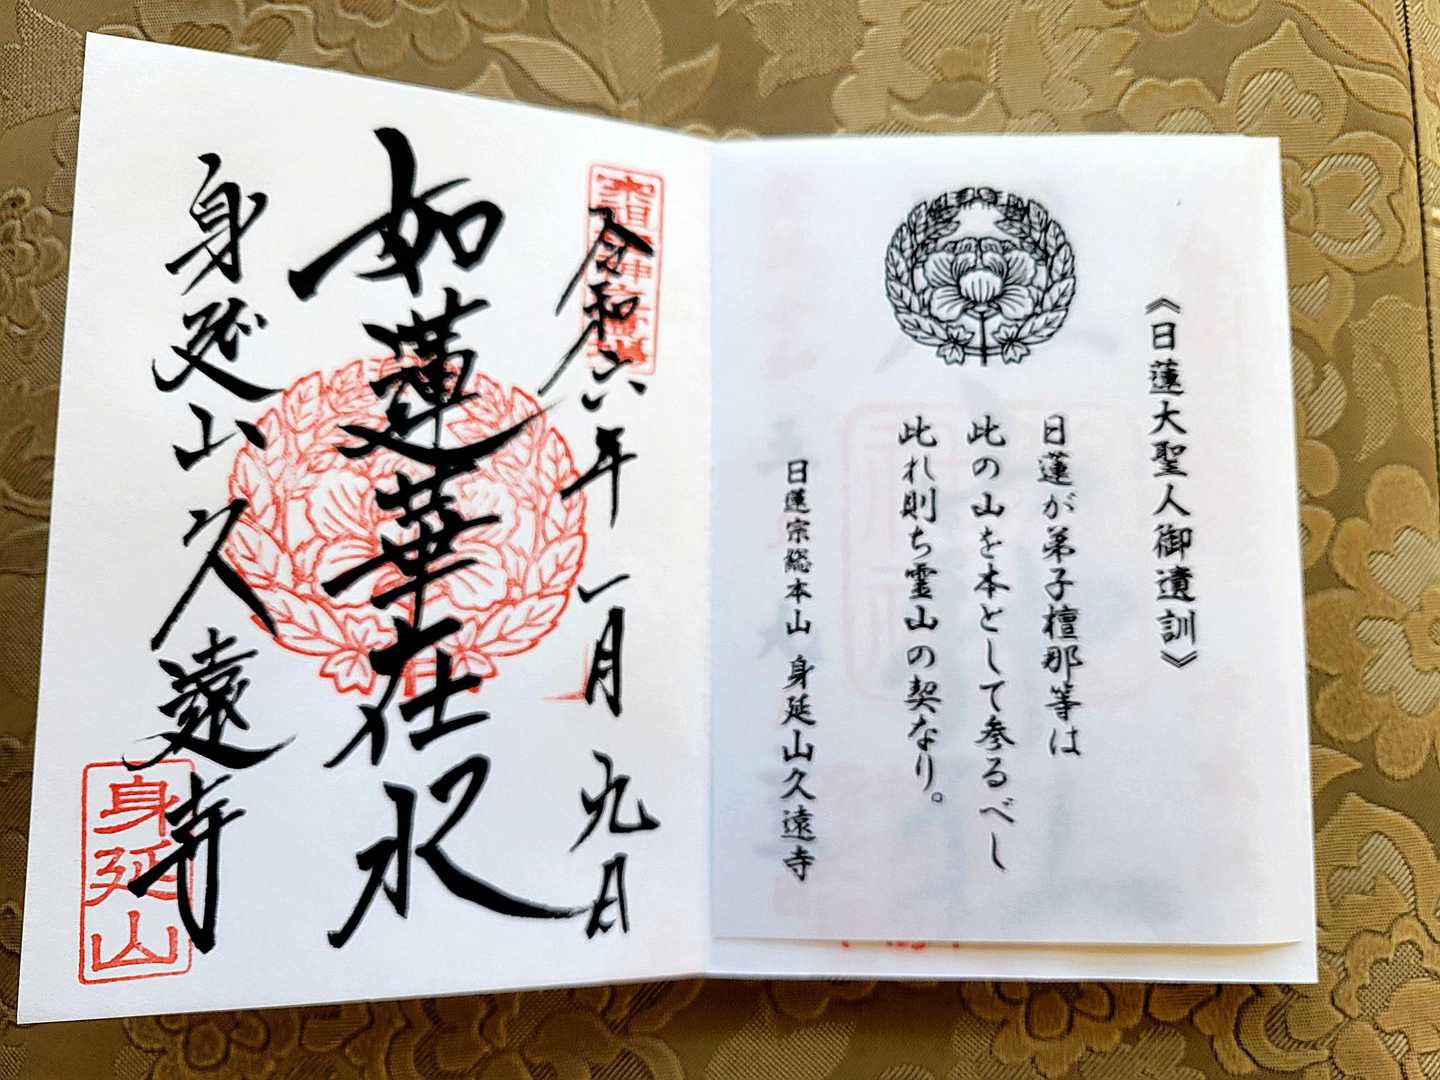 《日蓮大聖人御遺訓》
日蓮が弟子檀那等は
此の山を本として参るべし
此れ則ち霊山の契なり。
日蓮宗総本山 身延山久遠寺
令和六年一月九日
如蓮華在水
身延山久遠寺
身延山